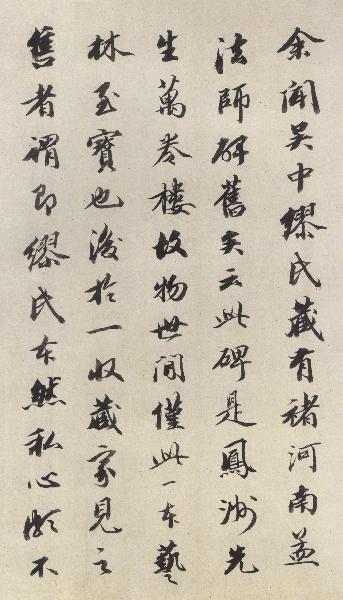 余聞吴中繆氏藏有褚河南孟
法師碑舊矣云此碑是鳳洲先
生萬卷樓故物世間僅此一本藝
林至寶也後於一收藏家見之
售者謂即繆氏本然私心頗不